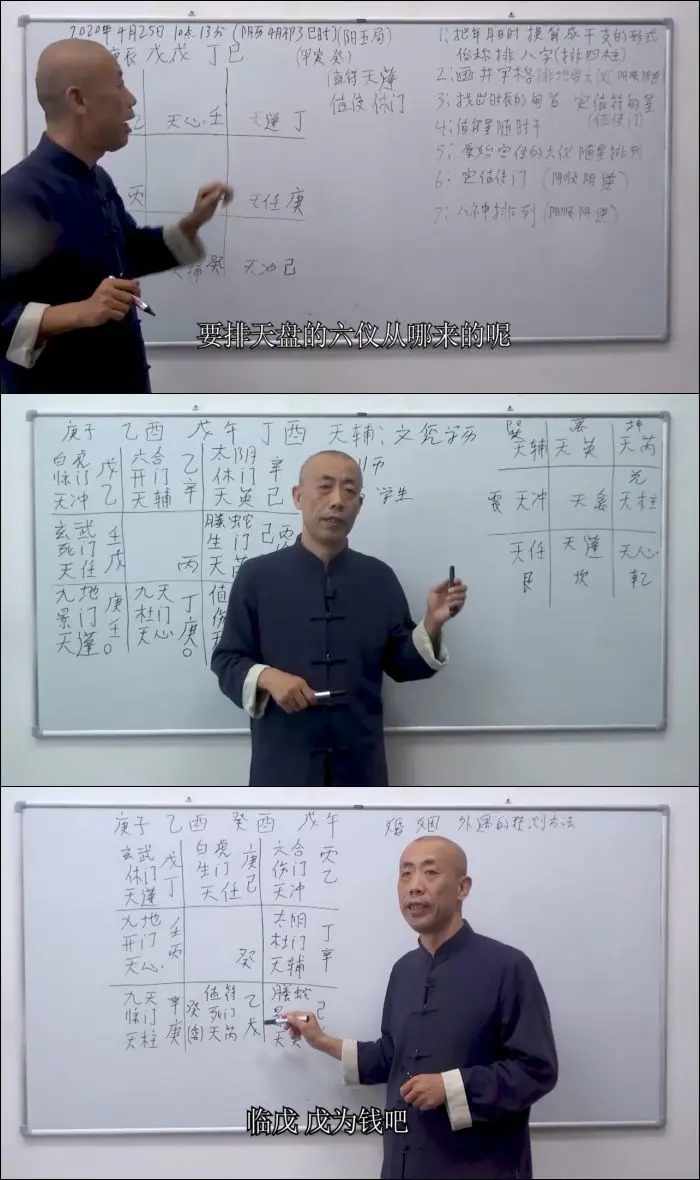 2020年4月25日 10点13分 (阴历4月初3巳时) (阳五局)
庚辰 戊戌 丁巳 (甲寅癸)
值符天蓬
值使休门
乙 天心壬 天蓬丁
丙 天任庚
天辅癸 天冲己
1:把年月日时换算成干支的形式
俗称排八字(排四柱)
2:画井字格排地盘六仪
3:找出时辰的旬首 定值符的星
(值使门)
4:值符星随时干
5:原始宫位的六仪随星排列
6:定值使门 (阳顺阴逆)
7:八神排列(阳顺阴逆)
要排天盘的六仪从哪来的呢
庚子 乙酉 戊午 丁酉 天辅:文凭学历
学生
白虎 戊 六合 乙 太阴 辛
惊门 开门 休门
天冲 乙 天辅 辛 天英 己
玄武 壬 螣蛇 己丙
死门 生门
天任 戊 丙 天芮
九地 庚 九天 丁 值
景门 杜门 伤
天蓬 壬 天心 庚
巽 离 坤
天辅 天英 天芮
兑
震 天冲 天禽 天柱
天任 天蓬 天心
艮 坎 乾
庚子 乙酉 癸酉 戊午 婚姻 外遇的预测方法
玄武 戊 白虎 庚 六合 丙
休门 生门 伤门
天蓬 丁 天任 己 天冲 乙
九地 壬 太阴 丁
开门 杜门
天心 丙 癸 天辅 辛
九天 辛 值符 乙 螣蛇 己
惊门 癸 死门
天柱 庚 (禽) 天芮 戊 天英
临戊 戊为钱吧